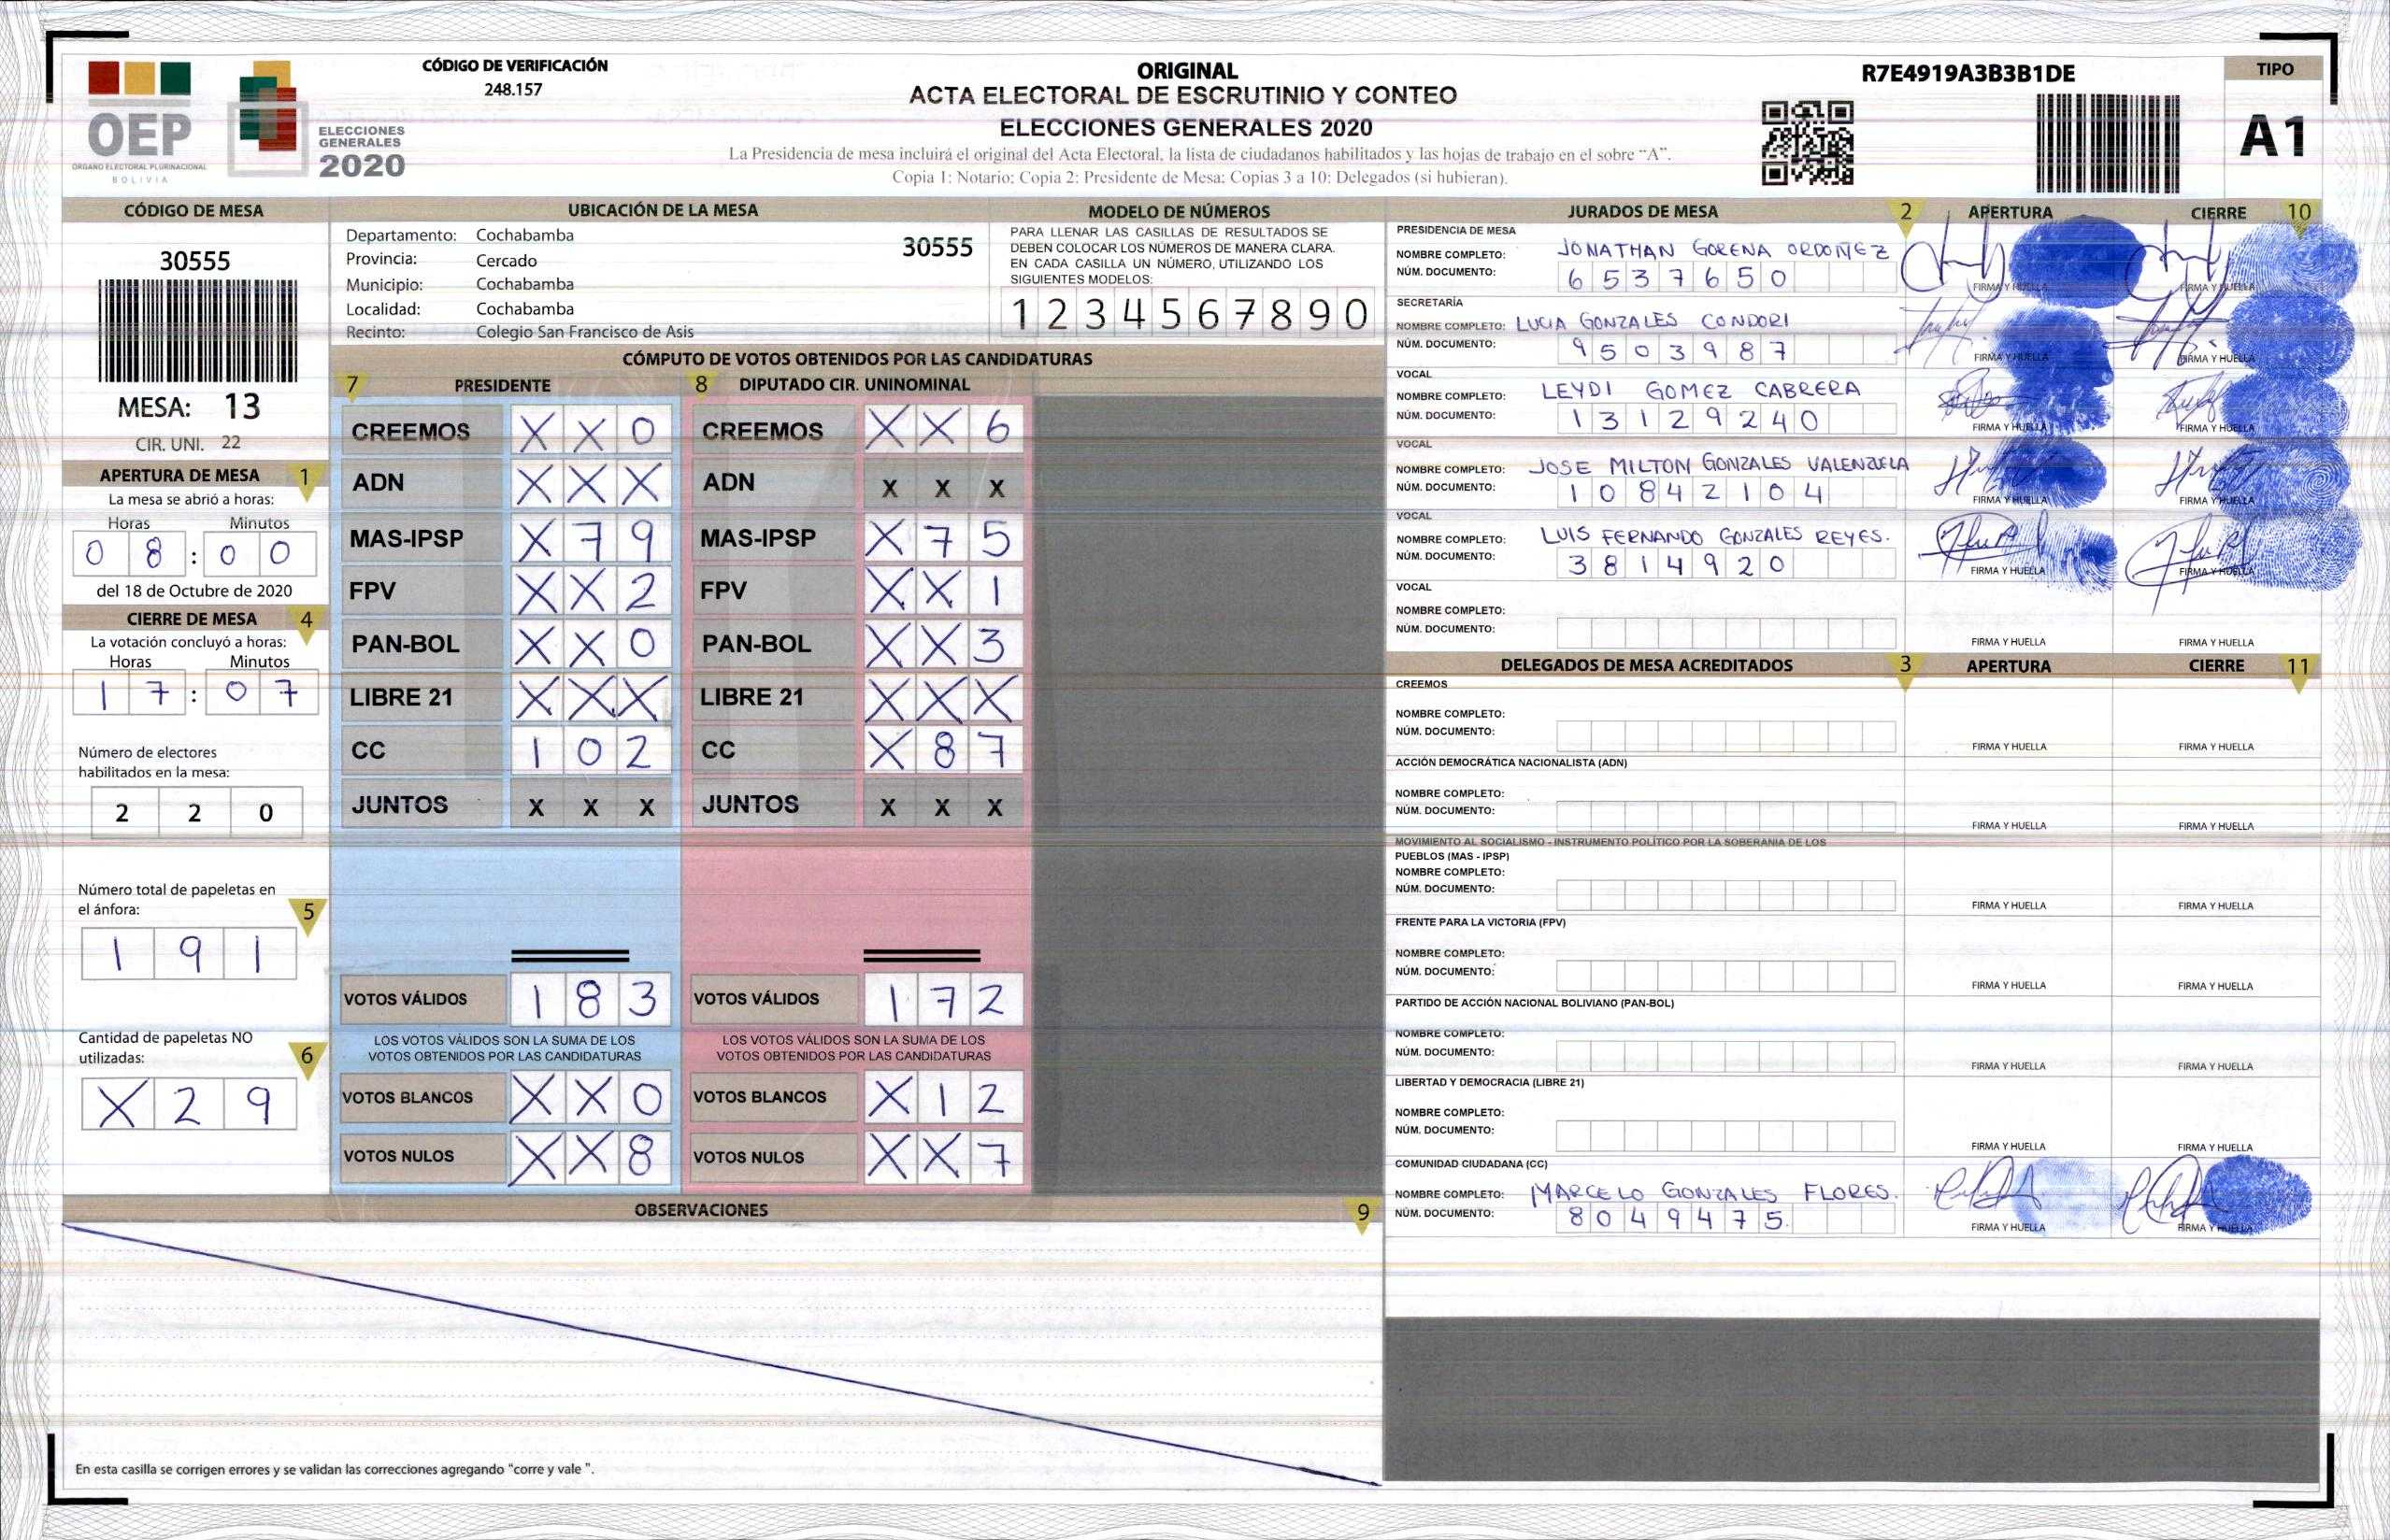 CÓDIGO DE VERIFICACIÓN
248.157
OEP
ORGANO ELECTORAL PLURINACIONAL
BOLIVIA
ELECCIONES
GENERALES
2020
ORIGINAL
ACTA ELECTORAL DE ESCRUTINIO Y CONTEO
ELECCIONES GENERALES 2020
La Presidencia de mesa incluirá el original del Acta Electoral, la lista de ciudadanos habilitados y las hojas de trabajo en el sobre "A".
Copia 1: Notario; Copia 2: Presidente de Mesa; Copias 3 a 10: Delegados (si hubieran).
R7E4919A3B3B1DE
TIPO
A1
CÓDIGO DE MESA
30555
MESA: 13
CIR. UNI. 22
APERTURA DE MESA 1
La mesa se abrió a horas:
Horas Minutos
0 8 : 0 0
del 18 de Octubre de 2020
CIERRE DE MESA 4
La votación concluyó a horas:
Horas Minutos
1 7 : 0 7
Número de electores
habilitados en la mesa:
2 2 0
Número total de papeletas en
el ánfora: 5
1 9 1
Cantidad de papeletas NO
utilizadas: 6
X 2 9
UBICACIÓN DE LA MESA
Departamento: Cochabamba 30555
Provincia: Cercado
Municipio: Cochabamba
Localidad: Cochabamba
Recinto: Colegio San Francisco de Asis
MODELO DE NÚMEROS
PARA LLENAR LAS CASILLAS DE RESULTADOS SE
DEBEN COLOCAR LOS NÚMEROS DE MANERA CLARA.
EN CADA CASILLA UN NÚMERO, UTILIZANDO LOS
SIGUIENTES MODELOS:
1 2 3 4 5 6 7 8 9 0
CÓMPUTO DE VOTOS OBTENIDOS POR LAS CANDIDATURAS
7 PRESIDENTE 8 DIPUTADO CIR. UNINOMINAL
CREEMOS X X 0 CREEMOS X X 6
ADN X X X ADN X X X
MAS-IPSP X 7 9 MAS-IPSP X 7 5
FPV X X 2 FPV X X 1
PAN-BOL X X 0 PAN-BOL X X 3
LIBRE 21 X X X LIBRE 21 X X X
CC 1 0 2 CC X 8 7
JUNTOS X X X JUNTOS X X X
VOTOS VÁLIDOS 1 8 3 VOTOS VÁLIDOS 1 7 2
LOS VOTOS VÁLIDOS SON LA SUMA DE LOS LOS VOTOS VÁLIDOS SON LA SUMA DE LOS
VOTOS OBTENIDOS POR LAS CANDIDATURAS VOTOS OBTENIDOS POR LAS CANDIDATURAS
VOTOS BLANCOS X X 0 VOTOS BLANCOS X 1 2
VOTOS NULOS X X 8 VOTOS NULOS X X 7
OBSERVACIONES 9
En esta casilla se corrigen errores y se validan las correcciones agregando "corre y vale ".
JURADOS DE MESA 2 APERTURA CIERRE 10
PRESIDENCIA DE MESA
NOMBRE COMPLETO: JONATHAN GORENA ORDOÑEZ
NÚM. DOCUMENTO: 6 5 3 7 6 5 0
FIRMA Y HUELLA FIRMA Y HUELLA
SECRETARÍA
NOMBRE COMPLETO: LUCIA GONZALES CONDORI
NÚM. DOCUMENTO: 9 5 0 3 9 8 7
FIRMA Y HUELLA FIRMA Y HUELLA
VOCAL
NOMBRE COMPLETO: LEYDI GOMEZ CABRERA
NÚM. DOCUMENTO: 1 3 1 2 9 2 4 0
FIRMA Y HUELLA FIRMA Y HUELLA
VOCAL
NOMBRE COMPLETO: JOSE MILTON GONZALES VALENZUELA
NÚM. DOCUMENTO: 1 0 8 4 2 1 0 4
FIRMA Y HUELLA FIRMA Y HUELLA
VOCAL
NOMBRE COMPLETO: LUIS FERNANDO GONZALES REYES.
NÚM. DOCUMENTO: 3 8 1 4 9 2 0
FIRMA Y HUELLA FIRMA Y HUELLA
VOCAL
NOMBRE COMPLETO:
NÚM. DOCUMENTO:
FIRMA Y HUELLA FIRMA Y HUELLA
DELEGADOS DE MESA ACREDITADOS 3 APERTURA CIERRE 11
CREEMOS
NOMBRE COMPLETO:
NÚM. DOCUMENTO:
FIRMA Y HUELLA FIRMA Y HUELLA
ACCIÓN DEMOCRÁTICA NACIONALISTA (ADN)
NOMBRE COMPLETO:
NÚM. DOCUMENTO:
FIRMA Y HUELLA FIRMA Y HUELLA
MOVIMIENTO AL SOCIALISMO - INSTRUMENTO POLÍTICO POR LA SOBERANIA DE LOS
PUEBLOS (MAS - IPSP)
NOMBRE COMPLETO:
NÚM. DOCUMENTO:
FIRMA Y HUELLA FIRMA Y HUELLA
FRENTE PARA LA VICTORIA (FPV)
NOMBRE COMPLETO:
NÚM. DOCUMENTO:
FIRMA Y HUELLA FIRMA Y HUELLA
PARTIDO DE ACCIÓN NACIONAL BOLIVIANO (PAN-BOL)
NOMBRE COMPLETO:
NÚM. DOCUMENTO:
FIRMA Y HUELLA FIRMA Y HUELLA
LIBERTAD Y DEMOCRACIA (LIBRE 21)
NOMBRE COMPLETO:
NÚM. DOCUMENTO:
FIRMA Y HUELLA FIRMA Y HUELLA
COMUNIDAD CIUDADANA (CC)
NOMBRE COMPLETO: MARCELO GONZALES FLORES.
NÚM. DOCUMENTO: 8 0 4 9 4 7 5.
FIRMA Y HUELLA FIRMA Y HUELLA